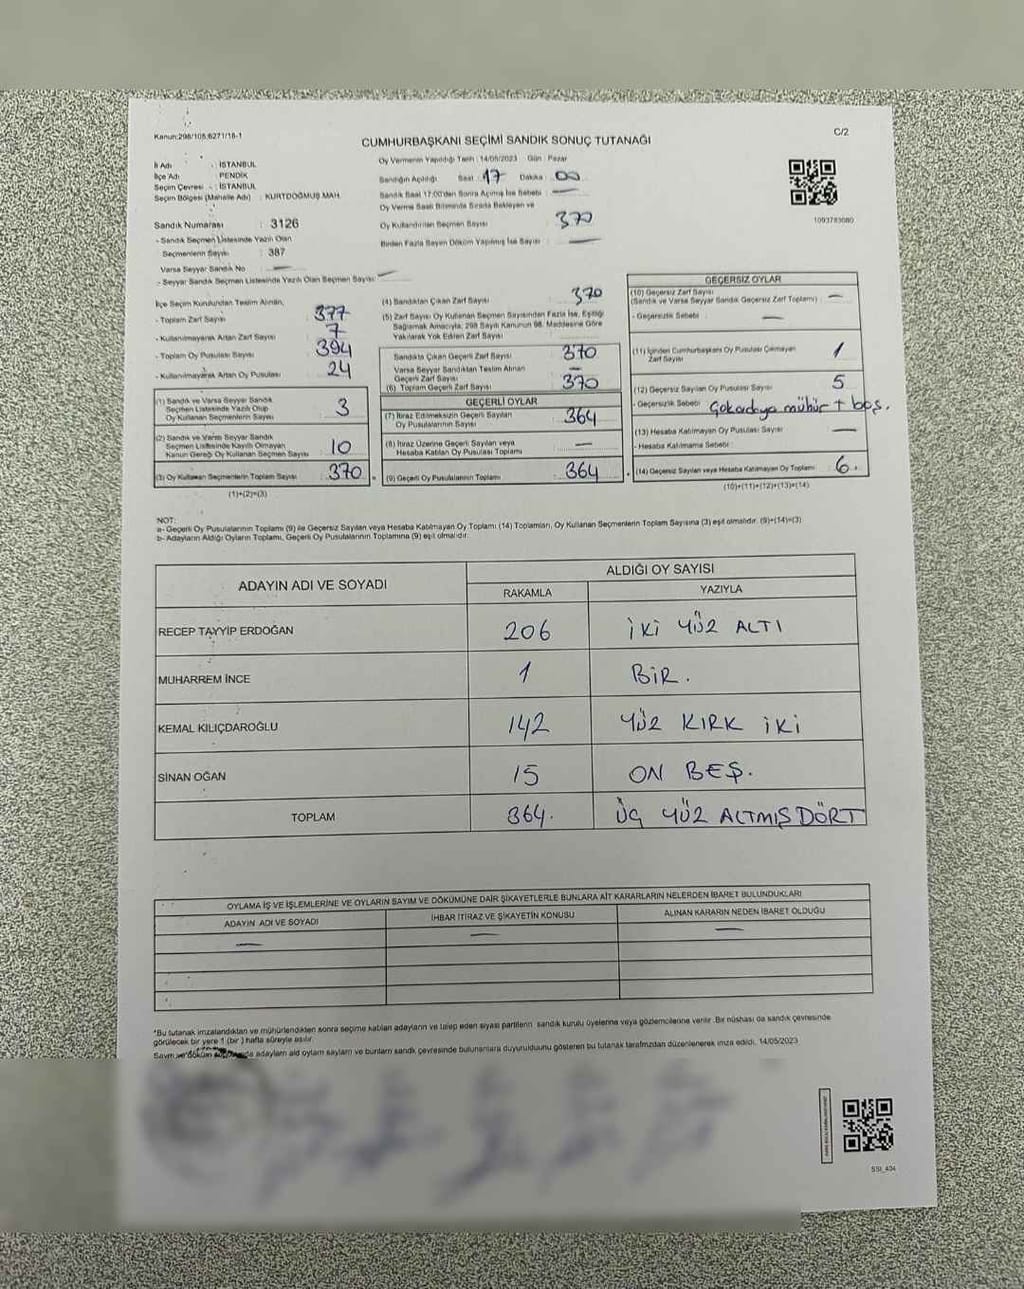 Kanun:298/105,6271/16-1
C/2
CUMHURBAŞKANI SEÇİMİ SANDIK SONUÇ TUTANAĞI
İl Adı : İSTANBUL
İlçe Adı : PENDİK
Seçim Çevresi : İSTANBUL
Seçim Bölgesi (Mahalle Adı) : KURTDOĞMUŞ MAH.
Sandık Numarası : 3126
- Sandık Seçmen Listesinde Yazılı Olan
Seçmenlerin Sayısı : 387
Varsa Seyyar Sandık No —
- Seyyar Sandık Seçmen Listesinde Yazılı Olan Seçmen Sayısı —
Oy Vermenin Yapıldığı Tarih : 14/05/2023 Gün : Pazar
Sandığın Açıldığı Saat : 17 Dakika : 00
Sandık Saat 17:00'den Sonra Açılmış İse Sebebi : —
Oy Verme Saati Bitiminde Sırada Bekleyen ve
Oy Kullandırılan Seçmen Sayısı : 370
Birden Fazla Sayım Döküm Yapılmış İse Sayısı : —
1093783080
İlçe Seçim Kurulundan Teslim Alınan,
- Toplam Zarf Sayısı 377
- Kullanılmayarak Artan Zarf Sayısı 7
- Toplam Oy Pusulası Sayısı 394
- Kullanılmayarak Artan Oy Pusulası 24
(1) Sandık ve Varsa Seyyar Sandık
Seçmen Listesinde Yazılı Olup
Oy Kullanan Seçmenlerin Sayısı 3
(2) Sandık ve Varsa Seyyar Sandık
Seçmen Listesinde Kayıtlı Olmayan
Kanun Gereği Oy Kullanan Seçmen Sayısı 10
(3) Oy Kullanan Seçmenlerin Toplam Sayısı 370
(1)+(2)=(3)
(4) Sandıktan Çıkan Zarf Sayısı 370
(5) Zarf Sayısı Oy Kullanan Seçmen Sayısından Fazla İse, Eşitliği
Sağlamak Amacıyla, 298 Sayılı Kanunun 98. Maddesine Göre
Yakılarak Yok Edilen Zarf Sayısı
Sandıkta Çıkan Geçerli Zarf Sayısı 370
Varsa Seyyar Sandıktan Teslim Alınan
Geçerli Zarf Sayısı —
(6) Toplam Geçerli Zarf Sayısı 370
GEÇERLİ OYLAR
(7) İtiraz Edilmeksizin Geçerli Sayılan
Oy Pusulasının Sayısı 364
(8) İtiraz Üzerine Geçerli Sayılan veya
Hesaba Katılan Oy Pusulası Toplamı —
(9) Geçerli Oy Pusulalarının Toplamı 364
GEÇERSİZ OYLAR
(10) Geçersiz Zarf Sayısı
(Sandık ve Varsa Seyyar Sandık Geçersiz Zarf Toplamı) —
- Geçersizlik Sebebi : —
(11) İçinden Cumhurbaşkanı Oy Pusulası Çıkmayan
Zarf Sayısı 1
(12) Geçersiz Sayılan Oy Pusulası Sayısı 5
- Geçersizlik Sebebi : mühür + boş.
(13) Hesaba Katılmayan Oy Pusulası Sayısı —
- Hesaba Katılmama Sebebi :
(14) Geçersiz Sayılan veya Hesaba Katılmayan Oy Toplamı 6.
(10)+(11)+(12)+(13)=(14)
NOT:
a- Geçerli Oy Pusulalarının Toplamı (9) ile Geçersiz Sayılan veya Hesaba Katılmayan Oy Toplamı (14) Toplamları, Oy Kullanan Seçmenlerin Toplam Sayısına (3) eşit olmalıdır. (9)+(14)=(3)
b- Adayların Aldığı Oyların Toplamı, Geçerli Oy Pusulalarının Toplamına (9) eşit olmalıdır.
ADAYIN ADI VE SOYADI
ALDIĞI OY SAYISI
RAKAMLA YAZIYLA
RECEP TAYYİP ERDOĞAN 206 İKİ YÜZ ALTI
MUHARREM İNCE 1 BİR.
KEMAL KILIÇDAROĞLU 142 YÜZ KIRK İKİ
SİNAN OĞAN 15 ON BEŞ.
TOPLAM 364. ÜÇ YÜZ ALTMIŞ DÖRT
OYLAMA İŞ VE İŞLEMLERİNE VE OYLARIN SAYIM VE DÖKÜMÜNE DAİR ŞİKAYETLERLE BUNLARA AİT KARARLARIN NELERDEN İBARET BULUNDUKLARI
ADAYIN ADI VE SOYADI İHBAR İTİRAZ VE ŞİKAYETİN KONUSU ALINAN KARARIN NEDEN İBARET OLDUĞU
— — —
*Bu tutanak imzalandıktan ve mühürlendikten sonra seçime katılan adayların ve talep eden siyasi partilerin sandık kurulu üyelerine veya gözlemcilerine verilir. Bir nüshası da sandık çevresinde
görülecek bir yere 1 (bir) hafta süreyle asılır.
Sayım ve döküm adayların aldığı oyların sayıların ve bunların sandık çevresinde bulunanlara duyurulduğunu gösteren bu tutanak tarafımızdan düzenlenerek imza edildi. 14/05/2023
SSI_404